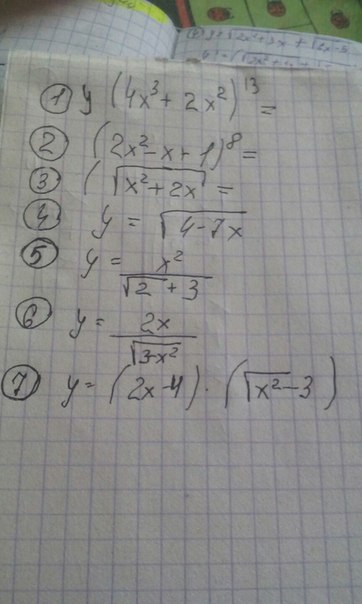 ① y (4x³ + 2x²)¹³ =
② (2x² - x + 1)⁸ =
③ (√(x² + 2x) =
④ y = √(4 - 7x)
⑤ y = x² / (√2 + 3)
⑥ y = 2x / √(3-x²)
⑦ y = (2x - 4) · (√x² - 3)